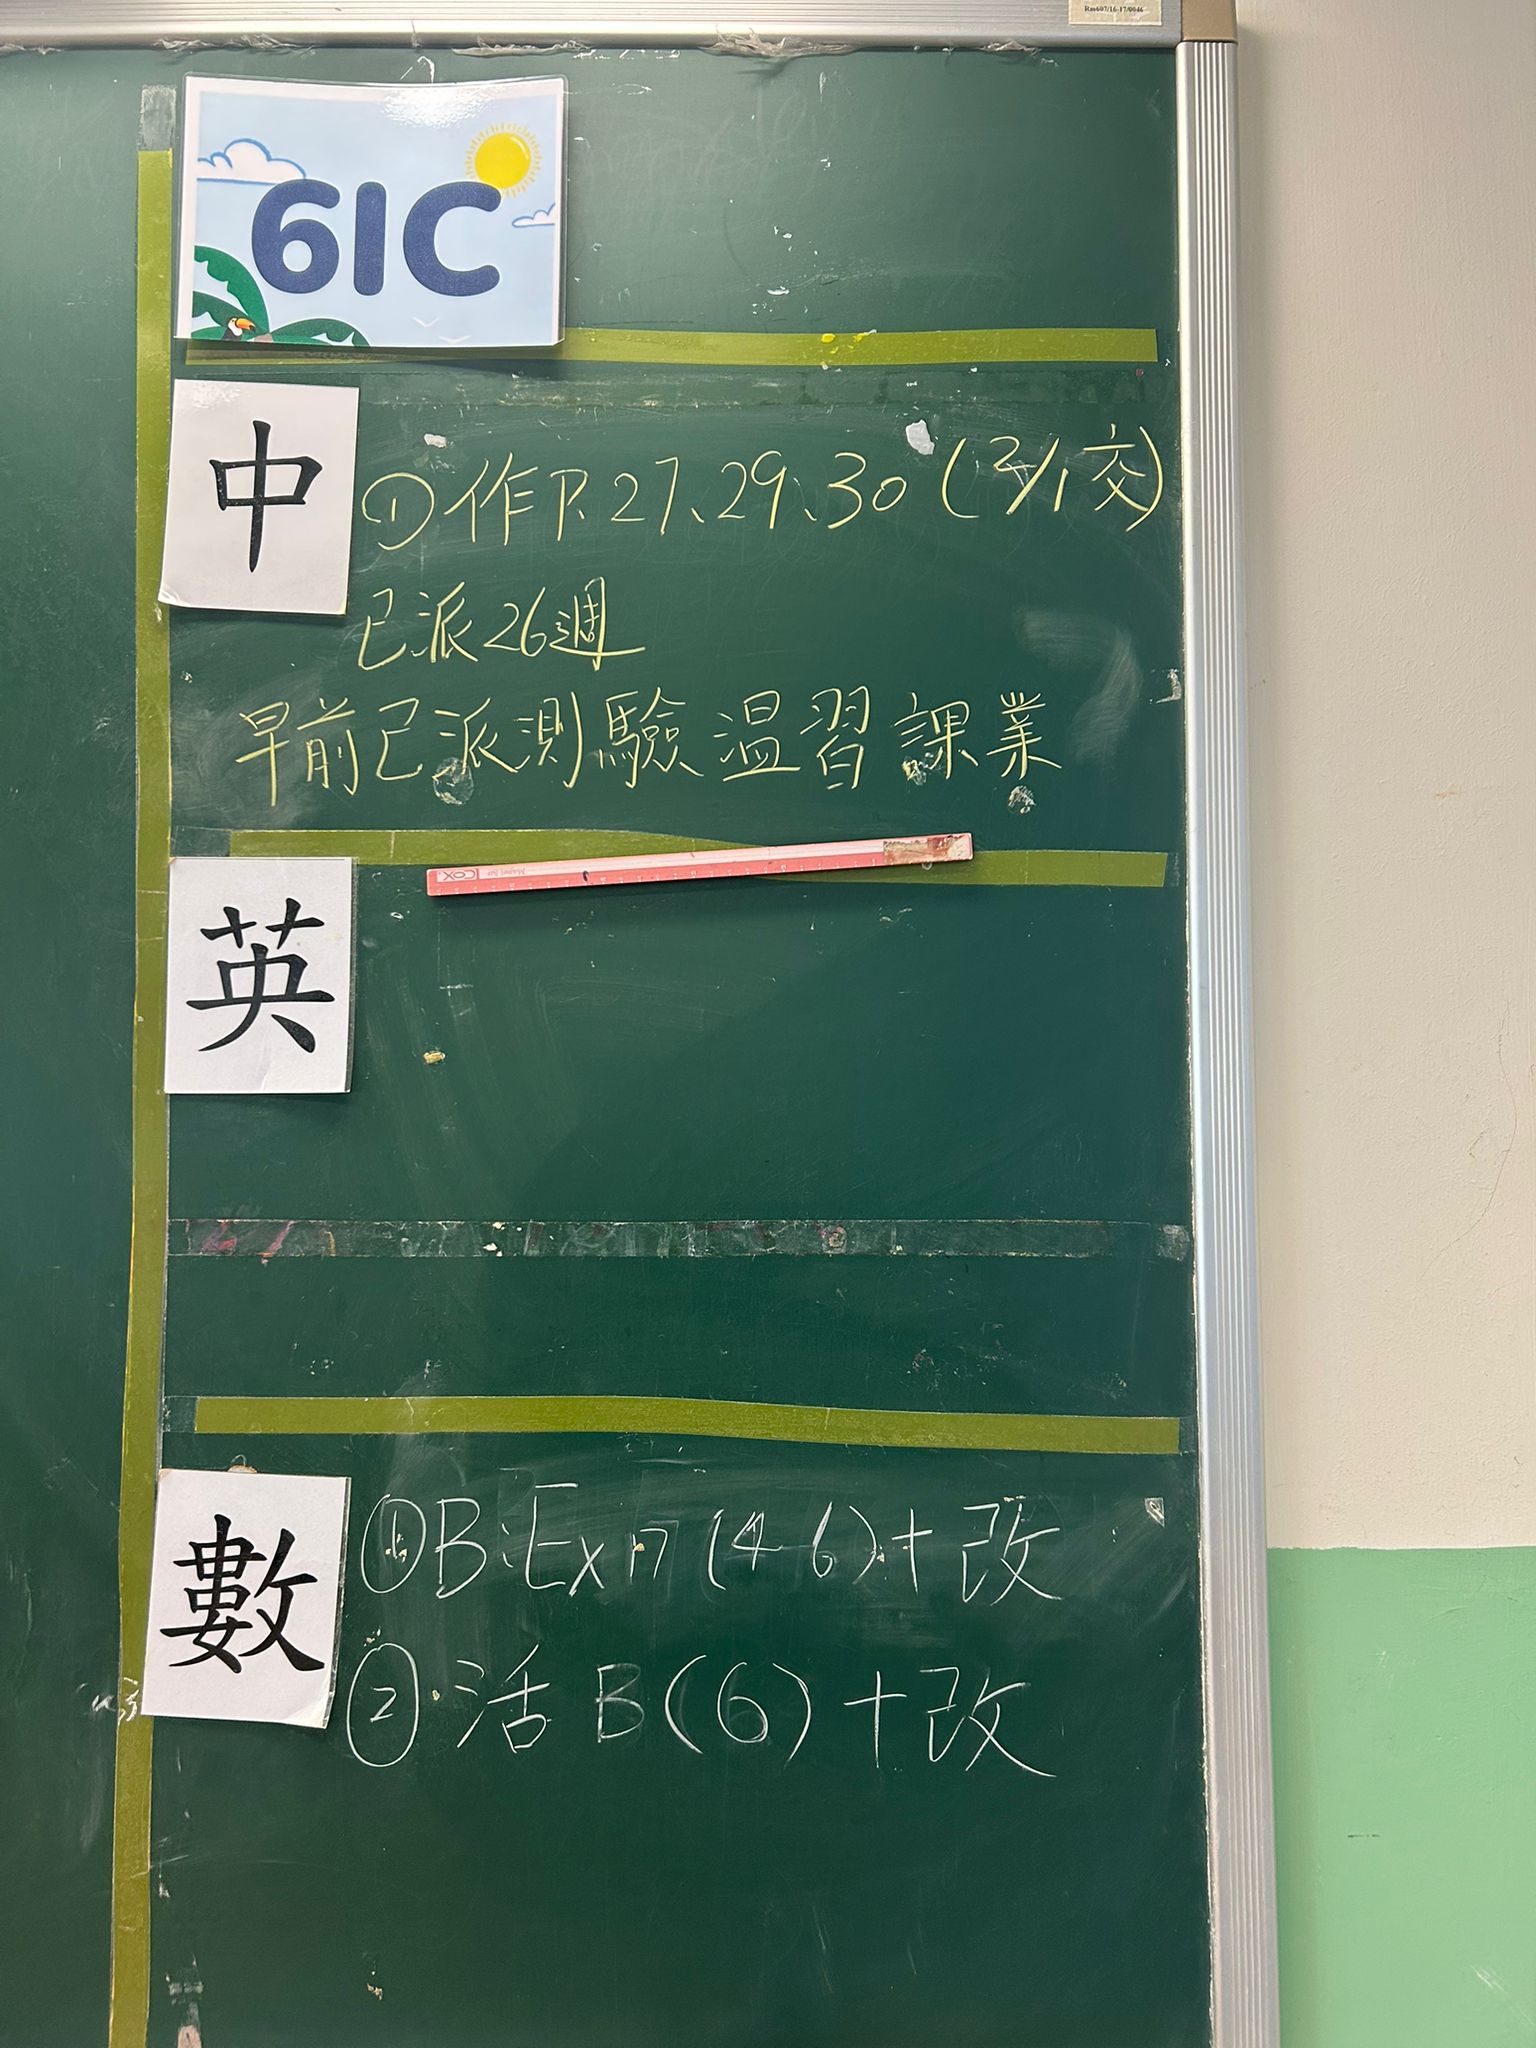 Rm607/16-17/0046
61C
中
① 作P.27、29、30 (2/1交)
已派26週
早前已派測驗温習課業
COX Magnet Bar
英
數
① B:Ex17 (4-6)+改
② 活 B(6)+改